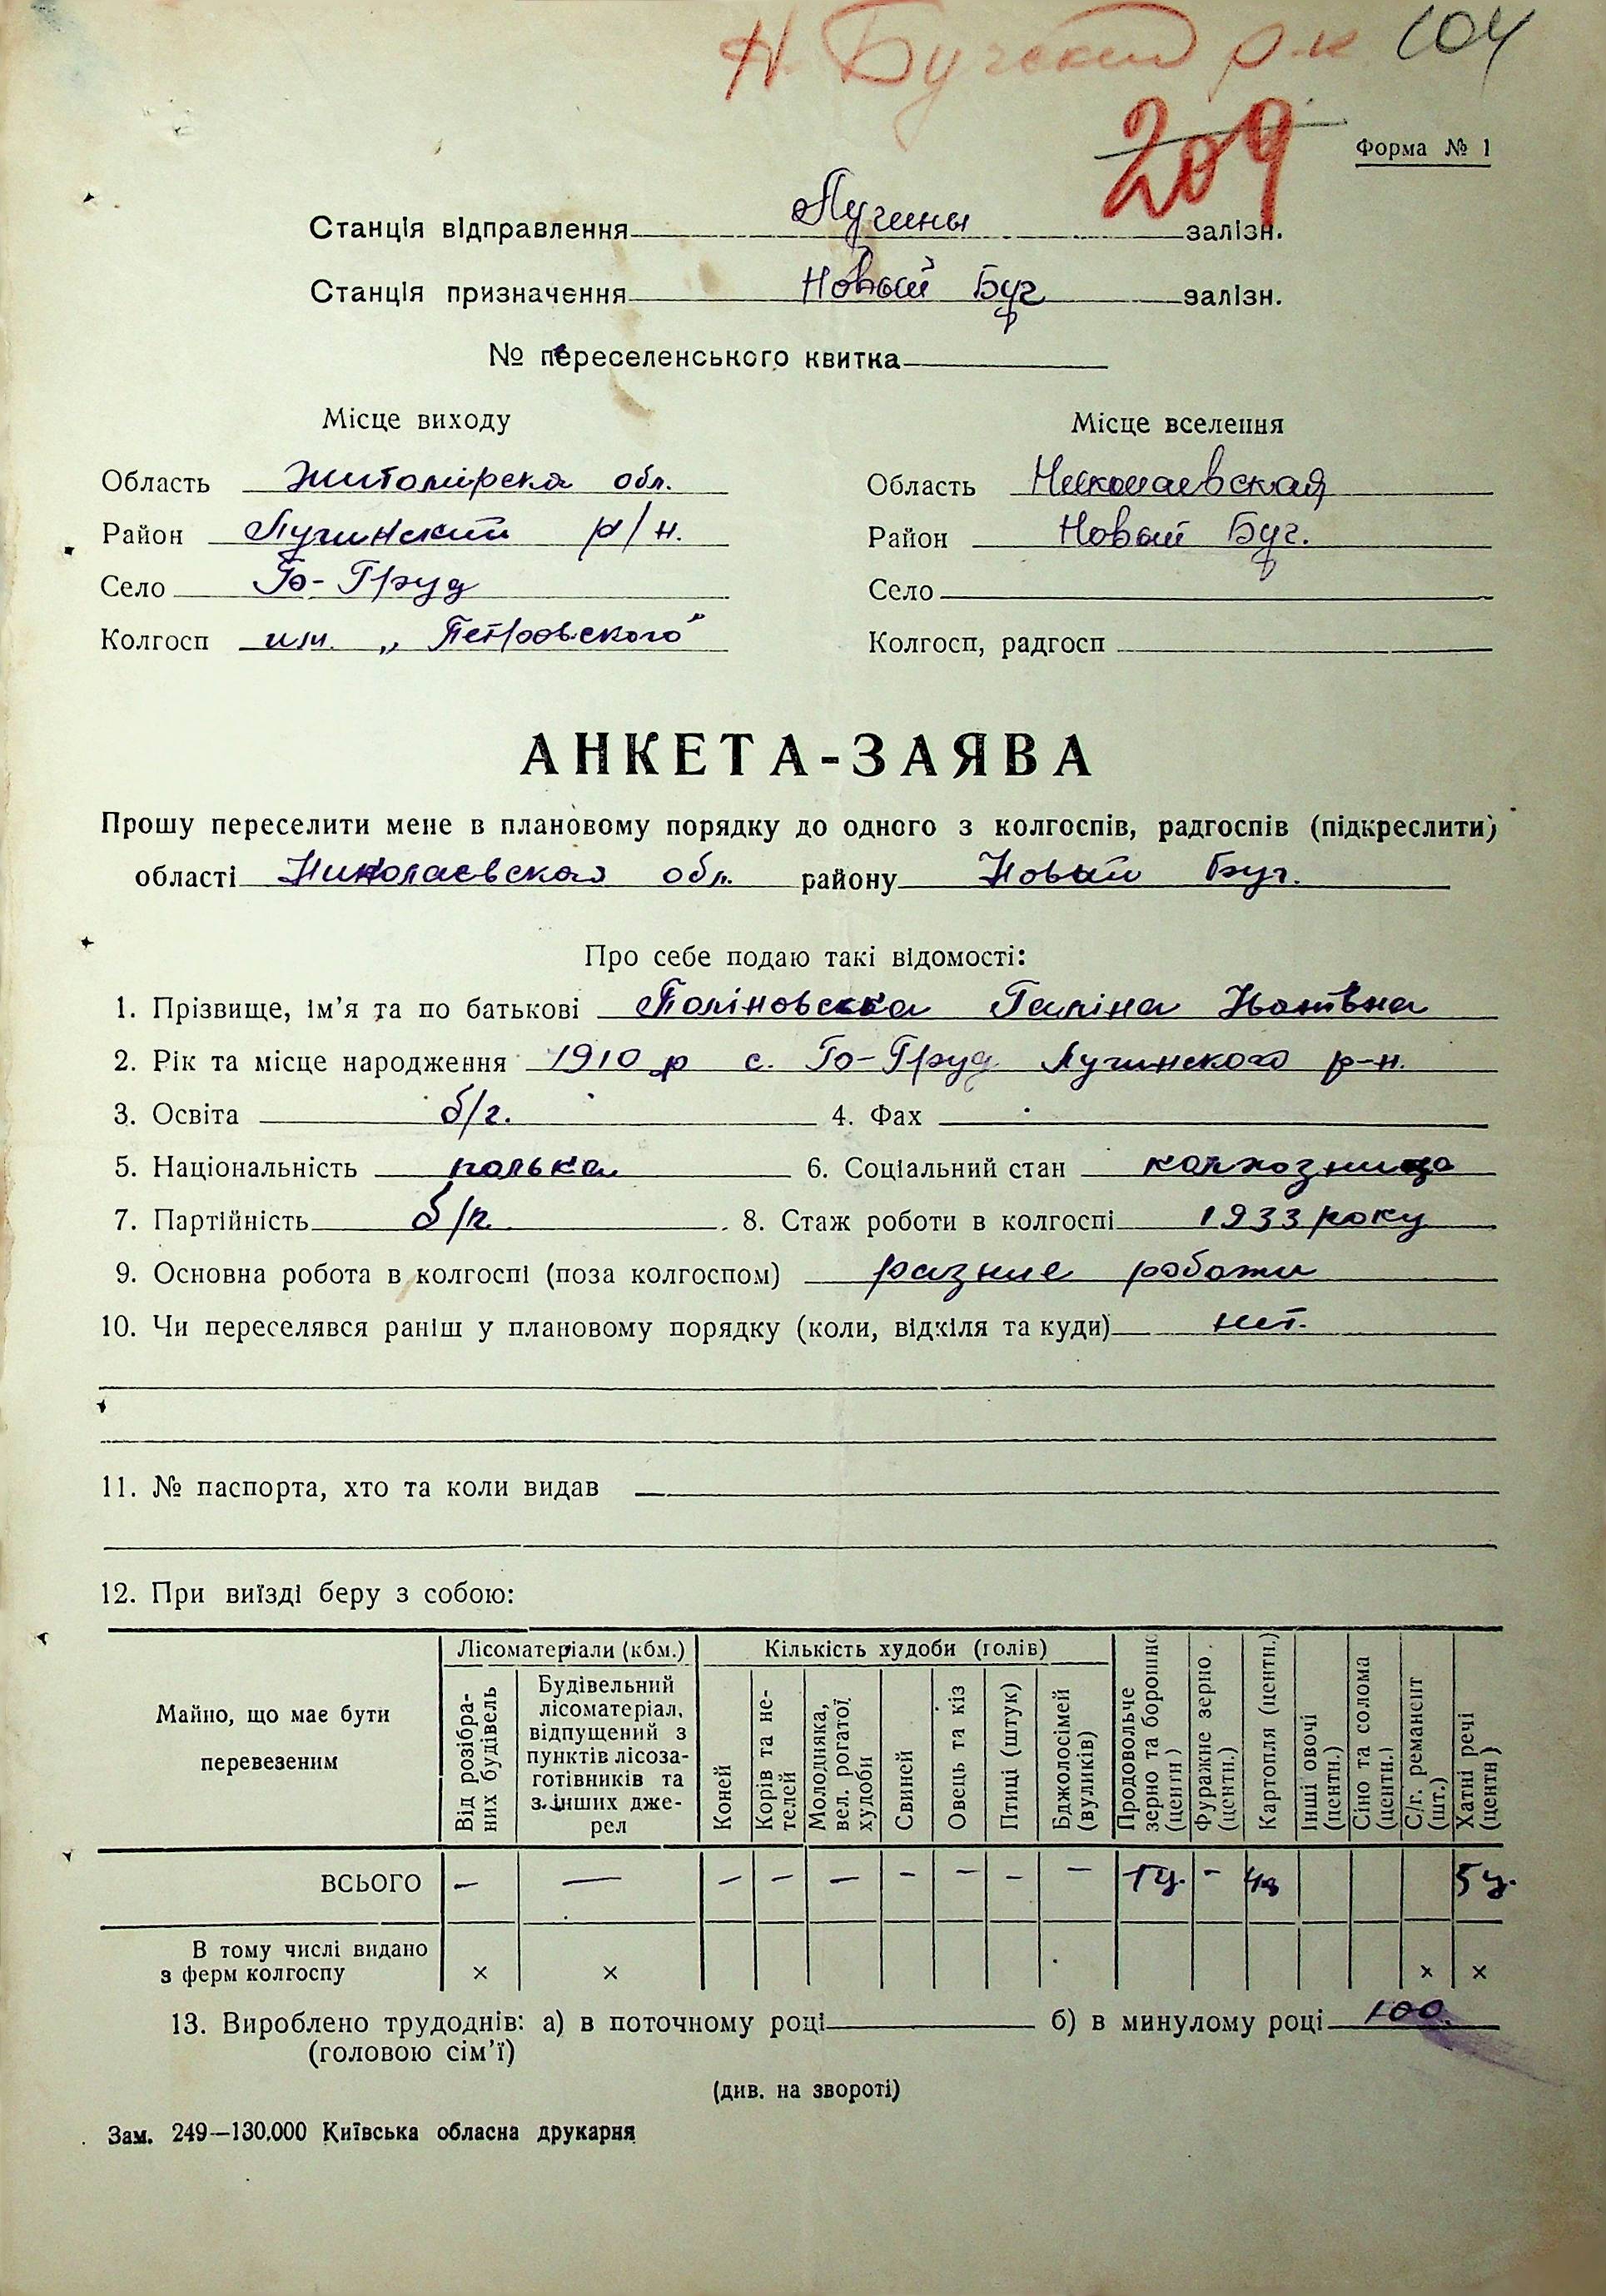 Н. Бугский р-н 104
209
Форма № 1
Станція відправлення Лучины залізн.
Станція призначення Новый Буг залізн.
№ переселенського квитка
Місце виходу Місце вселення
Область Житомірска обл. Область Николаевская
Район Лучинский р/н. Район Новый Буг.
Село Село
Колгосп им. „Петровского" Колгосп, радгосп
АНКЕТА-ЗАЯВА
Прошу переселити мене в плановому порядку до одного з колгоспів, радгоспів (підкреслити)
області Николаевская обл. району Новый Буг.
Про себе подаю такі відомості:
1. Прізвище, ім'я та по батькові Галіна
2. Рік та місце народження 1910 р с. Лучинского р-н.
3. Освіта б/г. 4. Фах
5. Національність полька 6. Соціальний стан колхозница
7. Партійність б/п 8. Стаж роботи в колгоспі 1933 року
9. Основна робота в колгоспі (поза колгоспом) разние роботи
10. Чи переселявся раніш у плановому порядку (коли, відкіля та куди) нет.
11. № паспорта, хто та коли видав
12. При виїзді беру з собою:
Майно, що має бути перевезеним
Лісоматеріали (кбм.)
Від розібра-
них будівель
Будівельний
лісоматеріал,
відпущений з
пунктів лісоза-
готівників та
з інших дже-
рел
Кількість худоби (голів)
Коней
Корів та не-
телей
Молодняка,
вел. рогатої
худоби
Свиней
Овець та кіз
Птиці (штук)
Бджолосімей
(вуликів)
Продовольче
зерно та борошно
(центн)
Фуражне зерно
(центн.)
Картопля (центн.)
Інші овочі
(центн.)
Сіно та солома
(центн.)
С/г. реманент
(шт.)
Хатні речі
(центн)
ВСЬОГО — — — — — - — - — 1ц. - 5 ц.
В тому числі видано
з ферм колгоспу × × × ×
13. Вироблено трудоднів: а) в поточному році б) в минулому році 100.
(головою сім'ї)
(див. на звороті)
Зам. 249—130.000 Київська обласна друкарня